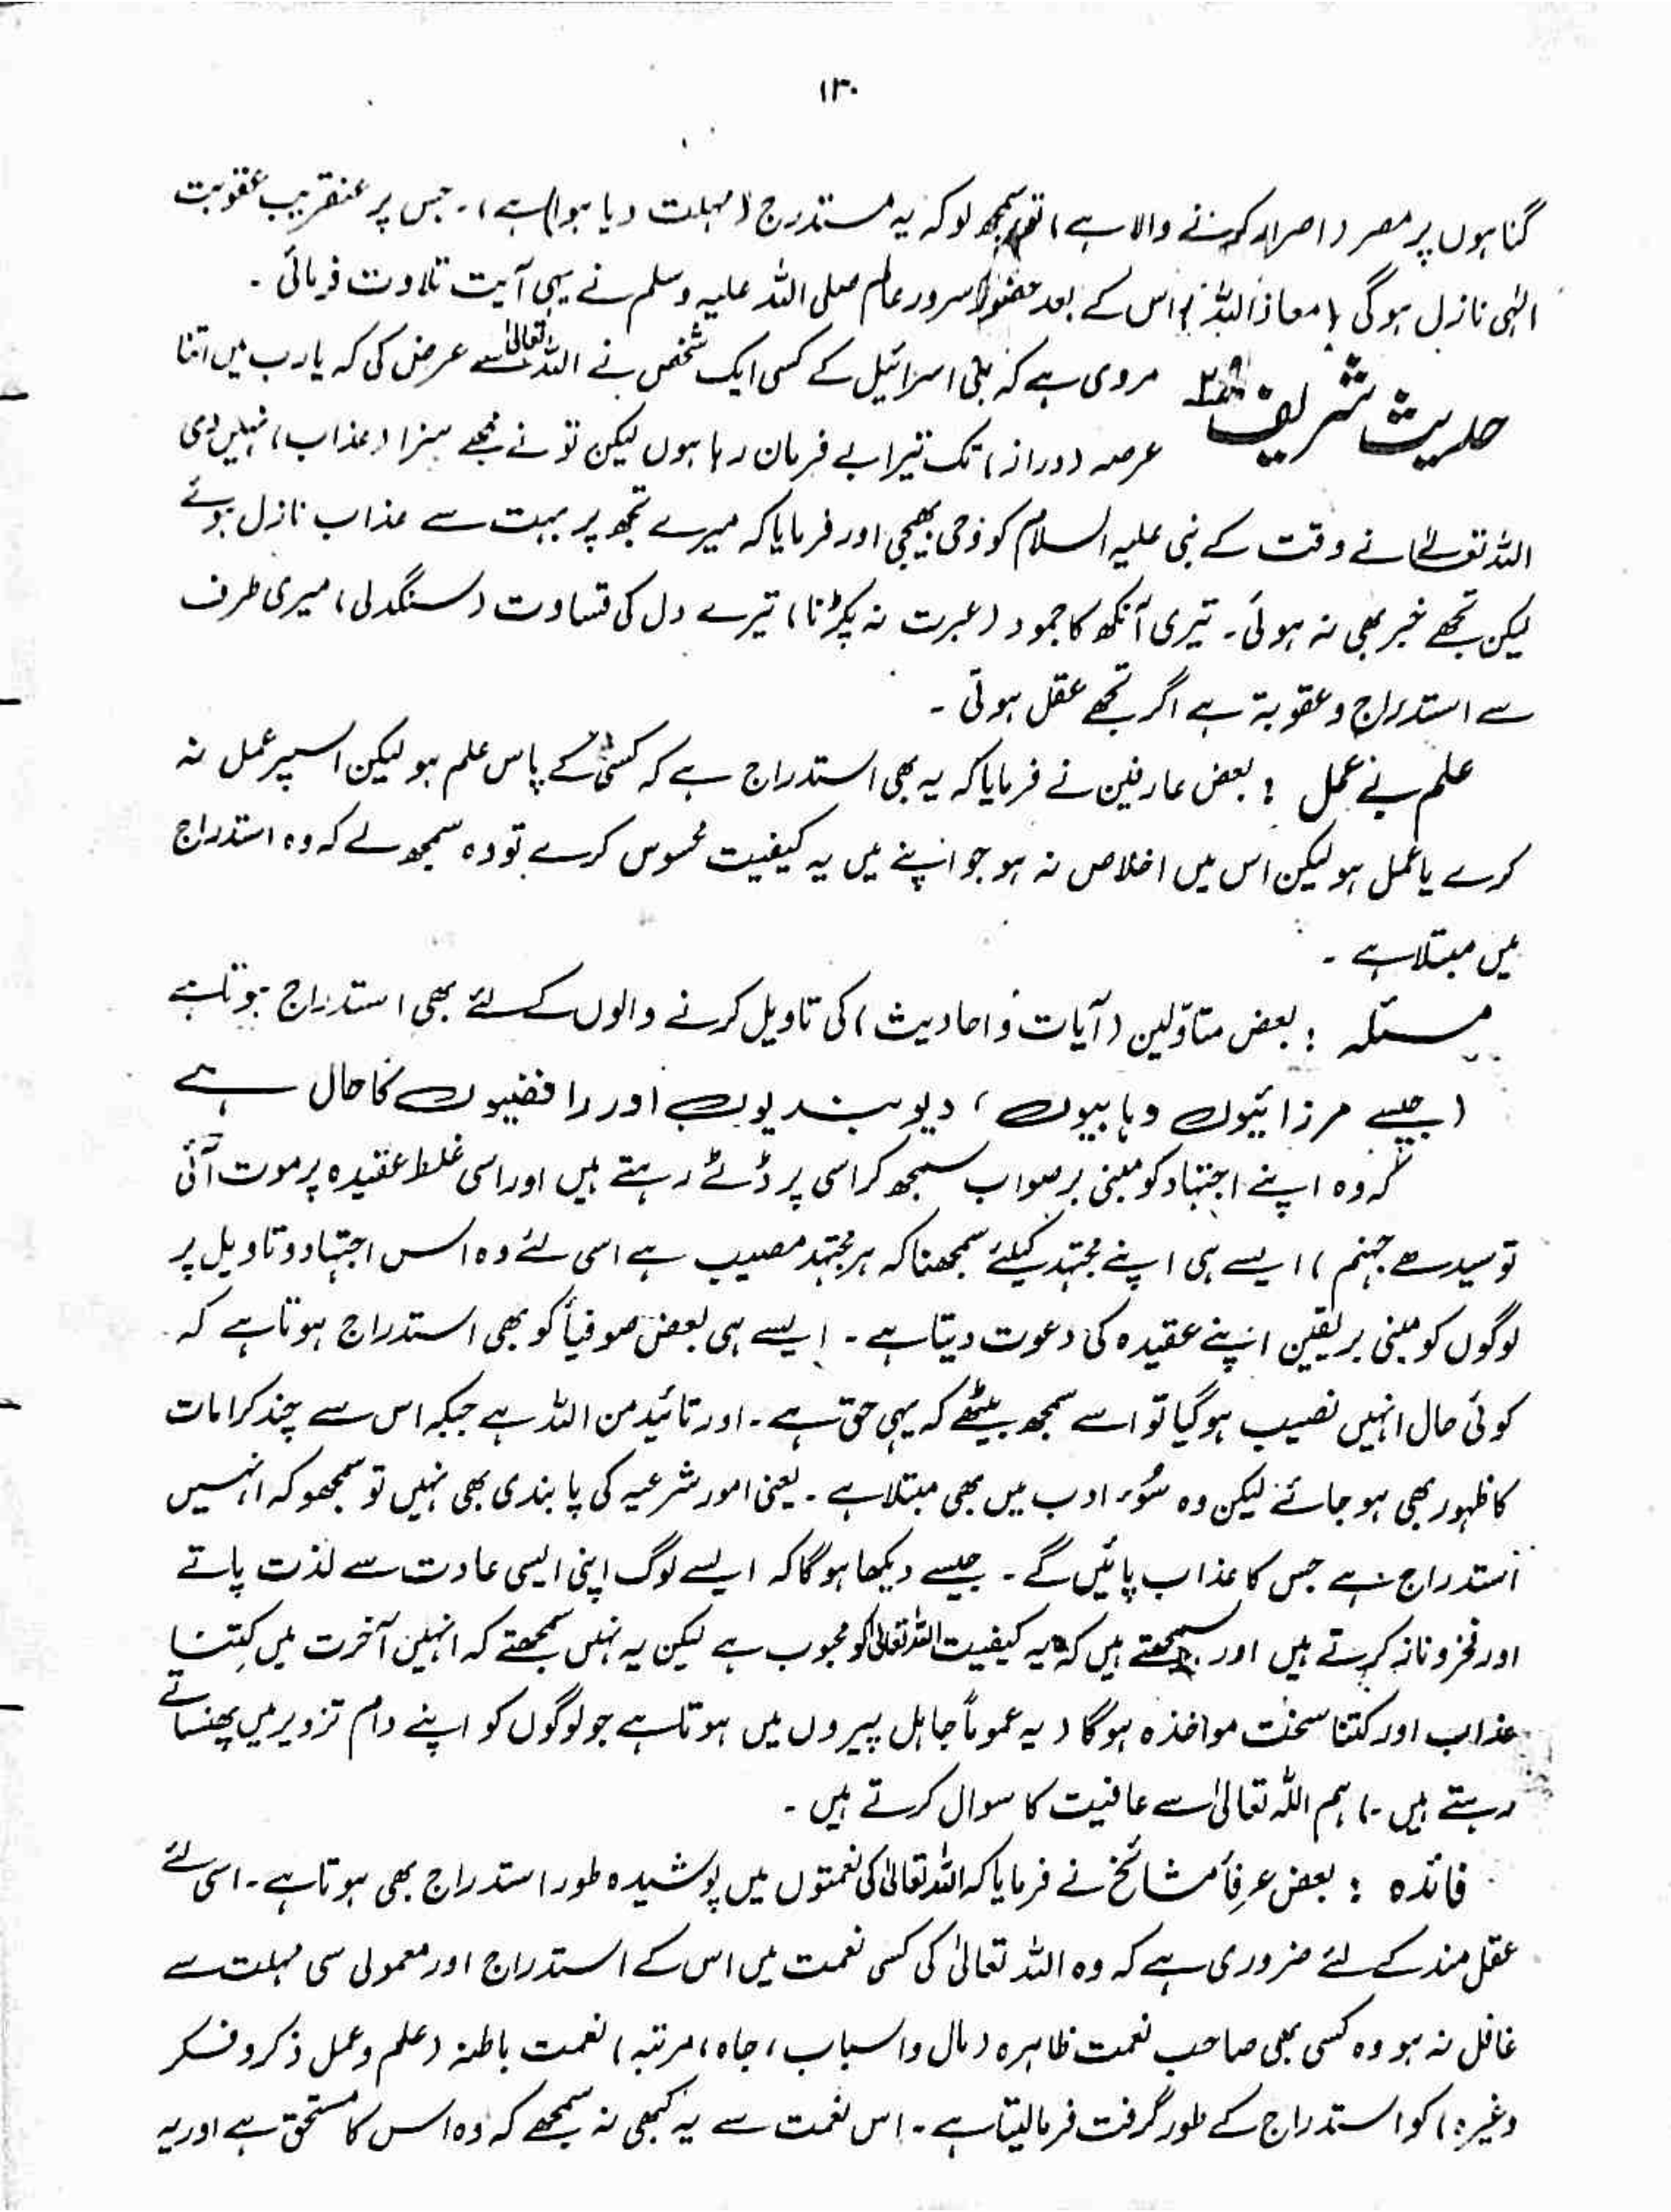 ۱۳۰
گناہوں پر مصر (اصرار کرنے والا ہے) تو سمجھ لو کہ یہ مستدرج (مہلت دیا ہوا) ہے، جس پر عنقریب عقوبت
الٰہی نازل ہوگی (معاذ اللہ) اس کے بعد حضور سرور عالم صلی اللہ علیہ وسلم نے یہی آیت تلاوت فرمائی ۔
حدیث شریف مروی ہے کہ بنی اسرائیل کے کسی ایک شخص نے اللہ تعالیٰ سے عرض کی کہ یارب میں اتنا
عرصہ (دراز) تک تیرا بے فرمان رہا ہوں لیکن تو نے مجھے سزا (عذاب) نہیں دی
اللہ تعالیٰ نے وقت کے نبی علیہ السلام کو وحی بھیجی اور فرمایا کہ میرے تجھ پر بہت سے عذاب نازل ہوئے
لیکن تجھے خبر بھی نہ ہوئی ۔ تیری آنکھ کا جمود (عبرت نہ پکڑنا) تیرے دل کی قساوت (سنگدلی) میری طرف
سے استدراج و عقوبۃ ہے اگر تجھے عقل ہوتی ۔
علم بے عمل : بعض عارفین نے فرمایا کہ یہ بھی استدراج ہے کہ کسی کے پاس علم ہو لیکن اسپر عمل نہ
کرے یا عمل ہو لیکن اس میں اخلاص نہ ہو جو اپنے میں یہ کیفیت محسوس کرے تو وہ سمجھ لے کہ وہ استدراج
میں مبتلا ہے ۔
مسئلہ : بعض متاوّلین (آیات و احادیث) کی تاویل کرنے والوں کے لئے بھی استدراج ہوتا ہے
(جیسے مرزائیوں وہابیوں، دیوبندیوں اور رافضیوں کا حال ہے
کہ وہ اپنے اجتہاد کو مبنی برصواب سمجھ کر اسی پر ڈٹے رہتے ہیں اور اسی غلط عقیدہ پر موت آئی
تو سیدھے جہنم) ایسے ہی اپنے مجتہد کیلئے سمجھنا کہ ہر مجتہد مصیب ہے اسی لئے وہ اس اجتہاد و تاویل پر
لوگوں کو مبنی بر یقین اپنے عقیدہ کی دعوت دیتا ہے ۔ ایسے ہی بعض صوفیأ کو بھی استدراج ہوتا ہے کہ
کوئی حال انہیں نصیب ہوگیا تو اسے سمجھ بیٹھے کہ یہی حق ہے ۔ اور تائید من اللہ ہے جبکہ اس سے چند کرامات
کا ظہور بھی ہو جائے لیکن وہ سُوء ادب میں بھی مبتلا ہے ۔ یعنی امور شرعیہ کی پابندی بھی نہیں تو سمجھو کہ انہیں
استدراج ہے جس کا عذاب پائیں گے ۔ جیسے دیکھا ہوگا کہ ایسے لوگ اپنی ایسی عادت سے لذت پاتے
اور فخر و ناز کرتے ہیں اور سمجھتے ہیں کہ یہ کیفیت اللہ تعالیٰ کو محبوب ہے لیکن یہ نہیں سمجھتے کہ انہیں آخرت میں کِتنا
عذاب اور کتنا سخت مواخذہ ہوگا (یہ عموماً جاہل پیروں میں ہوتا ہے جو لوگوں کو اپنے دام تزویر میں پھنساتے
رہتے ہیں ۔) ہم اللہ تعالیٰ سے عافیت کا سوال کرتے ہیں ۔
فائدہ : بعض عرفأ مشائخ نے فرمایا کہ اللہ تعالیٰ کی نعمتوں میں پوشیدہ طور استدراج بھی ہوتا ہے ۔ اسی لئے
عقل مند کے لئے ضروری ہے کہ وہ اللہ تعالیٰ کی کسی نعمت میں اس کے استدراج اور معمولی سی مہلت سے
غافل نہ ہو وہ کسی بھی صاحب نعمت ظاہرہ (مال و اسباب، جاہ، مرتبہ) نعمت باطنہ (علم و عمل ذکر و فکر
وغیرہ) کو استدراج کے طور گرفت فرمالیتا ہے ۔ اس نعمت سے یہ کبھی نہ سمجھے کہ وہ اس کا مستحق ہے اور یہ